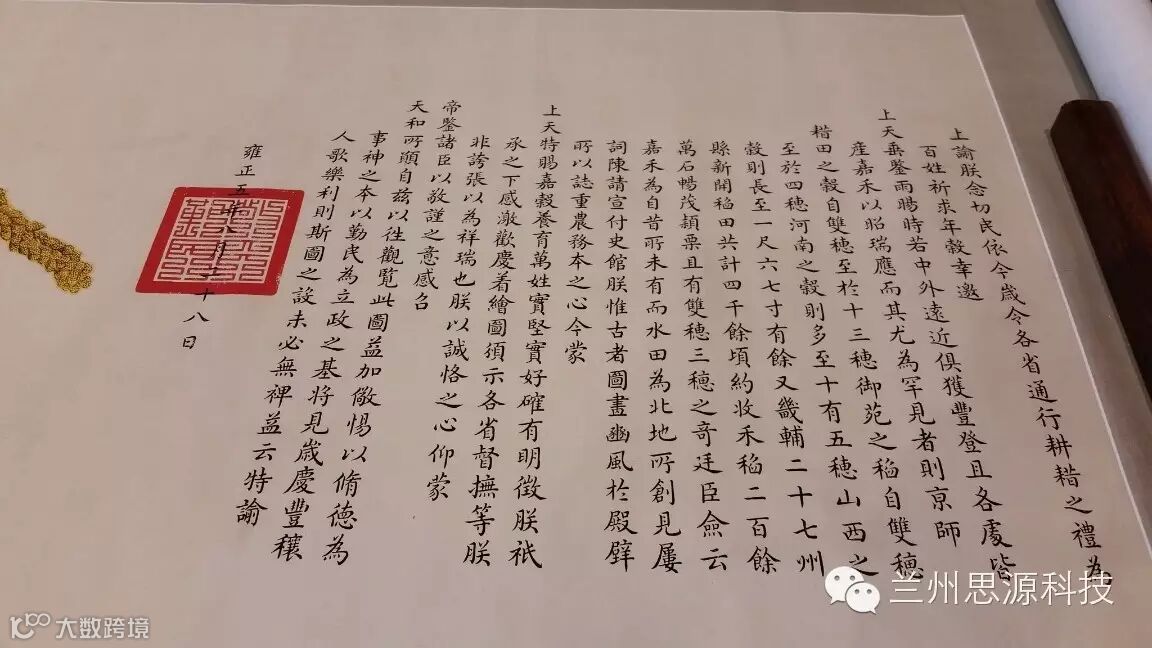 上諭朕念切民依今歲令各省通行耕耤之禮為
百姓祈求年穀幸邀
上天垂鑒雨暘時若中外遠近俱獲豐登且各處皆
產嘉禾以昭瑞應而其尤為罕見者則京師
耤田之穀自雙穗至於十三穗御苑之稻自雙穗
至於四穗河南之穀則多至十有五穗山西之
穀則長至一尺六七寸有餘又畿輔二十七州
縣新開稻田共計四千餘頃約收禾稻二百餘
萬石暢茂穎栗且有雙穗三穗之奇廷臣僉云
嘉禾為自昔所未有而水田為北地所創見屢
詞陳請宣付史館朕惟古者圖畫豳風於殿壁
所以誌重農務本之心今蒙
上天特賜嘉穀養育萬姓實堅實好確有明徵朕祇
承之下感激歡慶着繪圖須示各省督撫等朕
非誇張以為祥瑞也朕以誠恪之心仰蒙
帝鑒諸臣以敬謹之意感召
天和所願自兹以徃觀覽此圖益加儆惕以脩德為
事神之本以勤民為立政之基將見歲慶豐穰
人歌樂利則斯圖之設未必無裨益云特諭
雍正五年八月二十八日
兰州思源科技
大数跨境